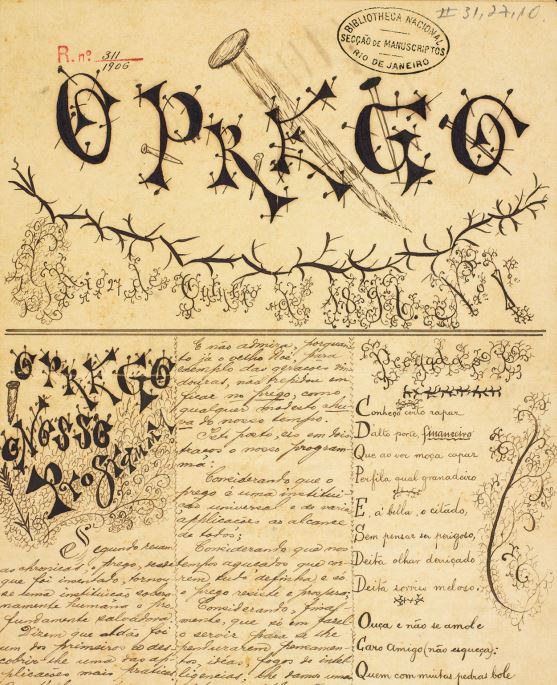 II-31,27,10.
BIBLIOTHECA NACIONAL
SECÇÃO DE MANUSCRIPTOS
RIO DE JANEIRO
R. nº 311
1906
O PREGO
de Outubro de Nº 1
O PREGO
E NOSSO
Programma
Segundo resam
as chronicas, o prego, desde
que foi inventado, tornou-
se uma instituição sobera-
namente humana e pro-
fundamente salvadora.
Dizem que foi
um dos primeiros a des-
cobrir-lhe uma das ap-
plicações mais praticas
E não admira, porquan-
to já o velho Noé, para
exemplo das gerações vin-
douras, não trepidou em
ficar no prego, como
qualquer modesto
do nosso tempo.
Isto posto, eis em dois
traços o nosso program-
ma:
Considerando que o
prego é uma institui-
ção universal e de varia
applicações ao alcance
de todos;
Considerando que nos
tempos aguados que cor-
rem tudo definha e só
o prego reviste e prospera;
Considerando, final-
mente, que só em
o servir para se lhe
pendurarem pennamen-
tos, idéas, fogos de intel-
ligencias, lhe damos uma
Pregados
Conheço certo rapaz
Dalto porte,
Que ao ver moça capaz
Perfila qual granadeiro
E, á bella, o citado,
Sem pensar ser perigoso,
Deita olhar derriçado
Deita sorriso meloso.
Ouça e não se amole
Caro Amigo (não esqueça):
Quem com muitas pedras bole